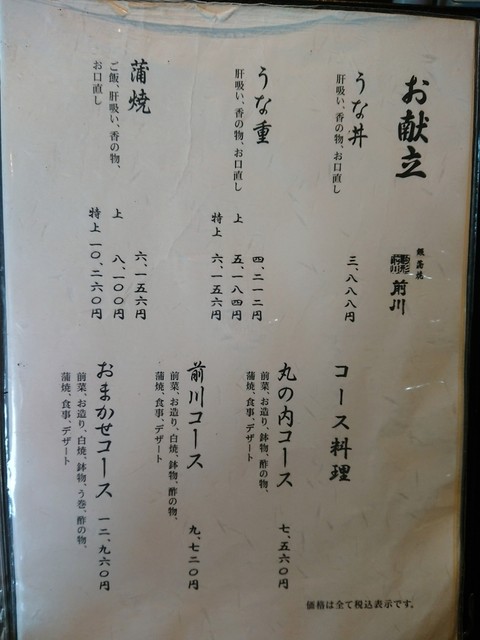 お献立
鰻蒲焼
駒形
前川
前川
うな丼
肝吸い、香の物、お口直し
三、八八八円
うな重
肝吸い、香の物、お口直し
四、二一二円
上 五、一八四円
特上 六、一五六円
蒲焼
ご飯、肝吸い、香の物、
お口直し
六、一五六円
上 八、一〇〇円
特上 一〇、二六〇円
コース料理
丸の内コース 七、五六〇円
前菜、お造り、鉢物、酢の物、
蒲焼、食事、デザート
前川コース 九、七二〇円
前菜、お造り、白焼、鉢物、酢の物、
蒲焼、食事、デザート
おまかせコース 一二、九六〇円
前菜、お造り、白焼、鉢物、う巻、酢の物、
蒲焼、食事、デザート
価格は全て税込表示です。